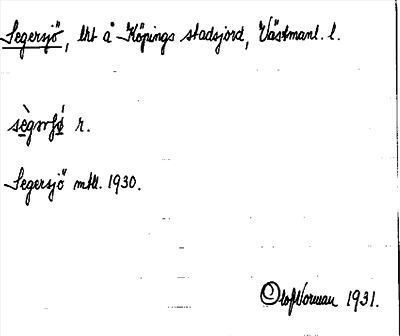 Segersjö, lht å Köpings stadsjord, Västmanl. l.
r.
Segersjö mtll. 1930.
Olof Norman 1931.